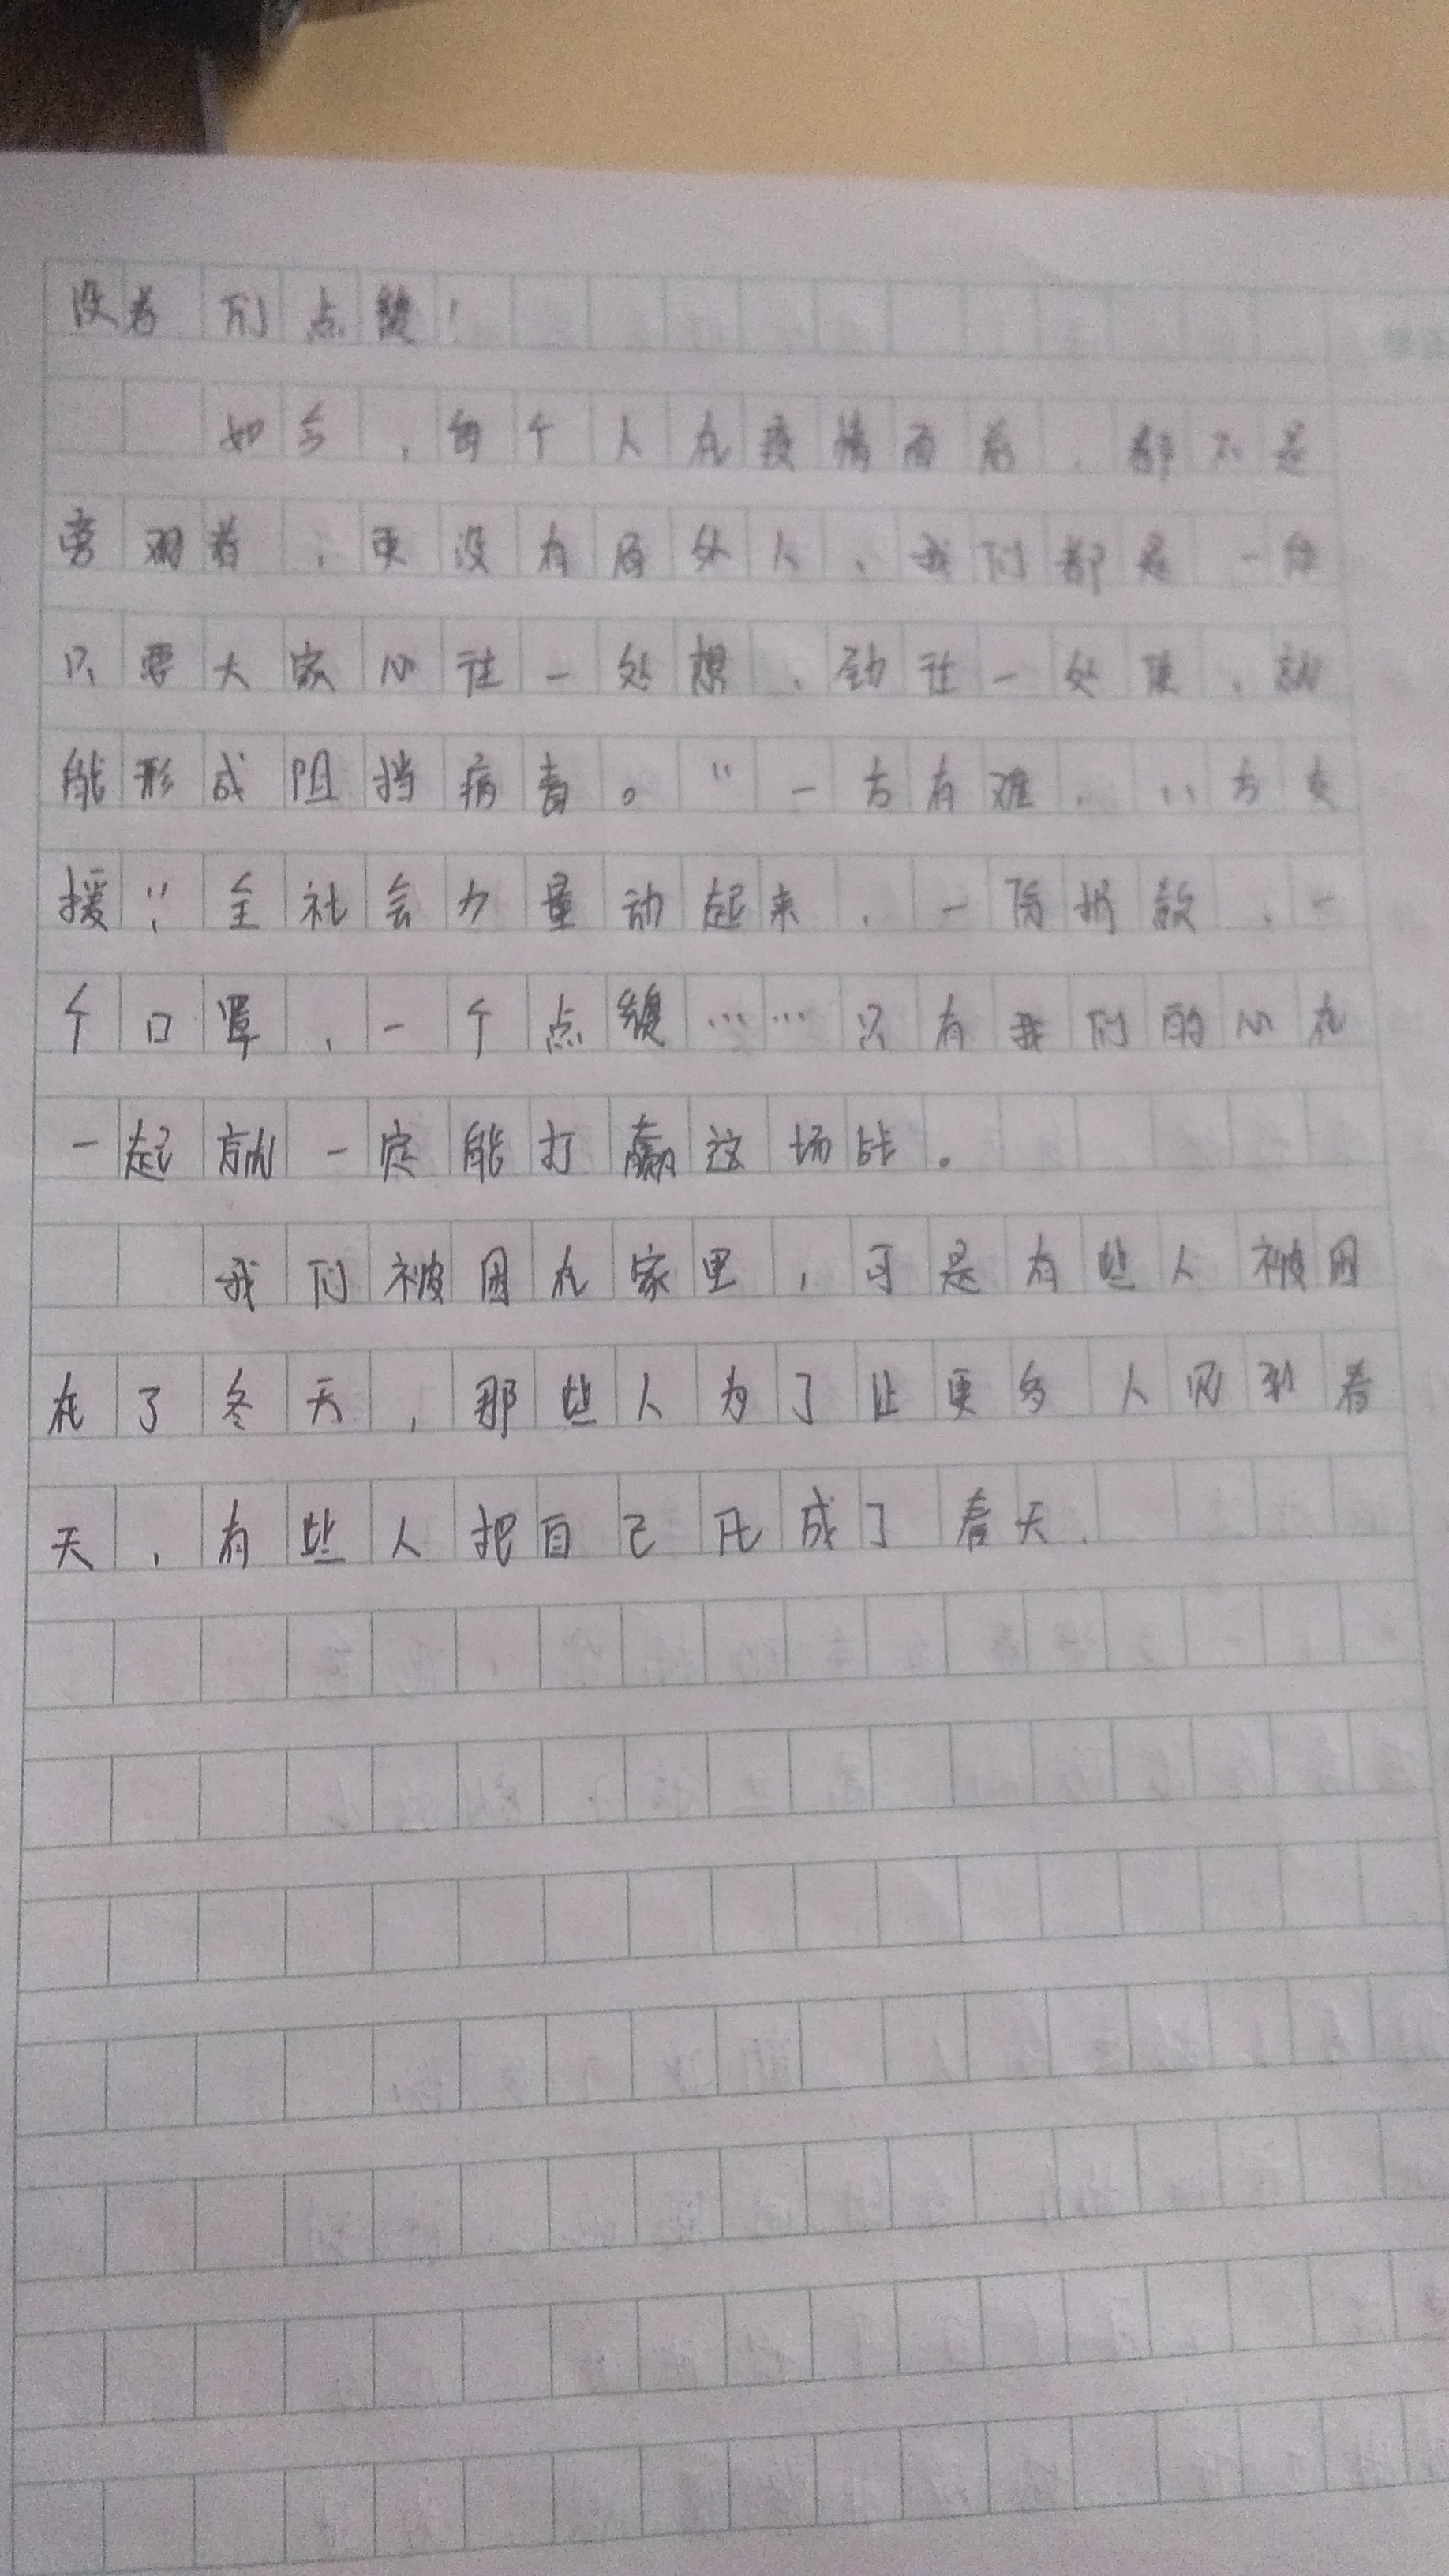 没有们点缀!
如今,每个人在疫情面前,都不是
旁观者,更没有局外人、我们都是一体
只要大家心往一处想,劲往一处使,就
能形成阻挡病毒。“一方有难,八方支
援”;全社会力量动起来,一份捐款,一
个口罩,一个点缀……只有我们的心在
一起就一定能打赢这场战。
我们被困在家里,可是有些人被困
在了冬天,那些人为了让更多人见到春
天,有些人把自己死成了春天.